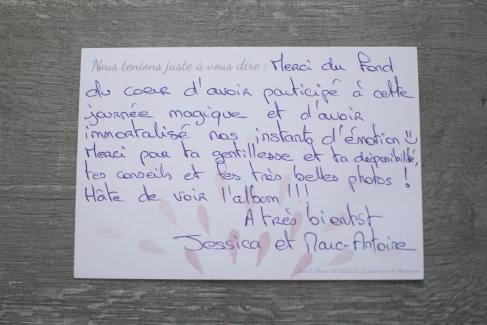 Nous tenions juste à vous dire : Merci du Fond
du coeur d'avoir participé à cette
journée magique et d'avoir
immortalisé nos instants d'émotion !!
Merci pour ta gentillesse et ta disponibilité,
tes conseils et tes très belles photos !
Hâte de voir l'album !!!
A très bientôt
Jessica et Marc-Antoine